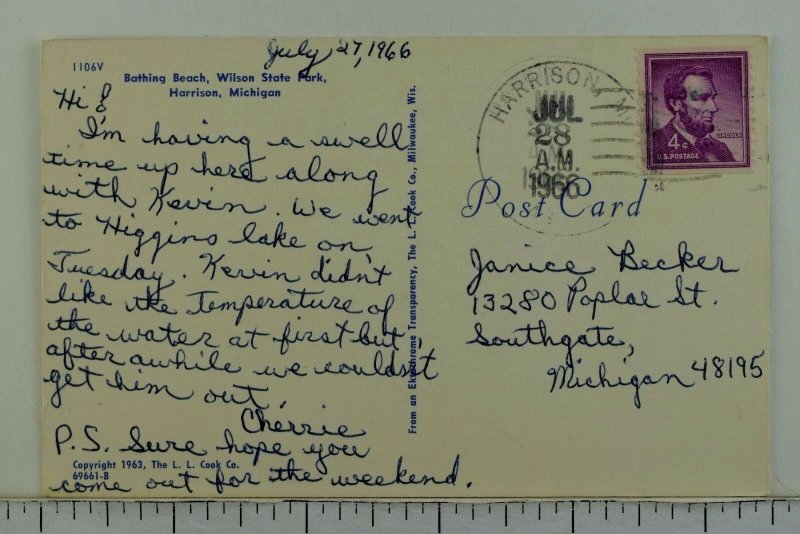 July 27, 1966
1106V
Bathing Beach, Wilson State Park,
Harrison, Michigan
Hi &
I'm having a swell
time up here along
with Kevin. We went
to Higgins lake on
Tuesday. Kevin didn't
like the Temperature of
the water at first but,
after awhile we couldn't
get him out.
Cherrie
P.S. Sure hope you
come out for the weekend.
Copyright 1963, The L. L. Cook Co.
69661-B
From an Ektachrome Transparency, The L. L. Cook Co., Milwaukee, Wis.
HARRISON, MI
JUL
28
A.M.
1966
LINCOLN
4¢
U.S. POSTAGE
Post Card
Janice Becker
13280 Poplar St.
Southgate,
Michigan 48195